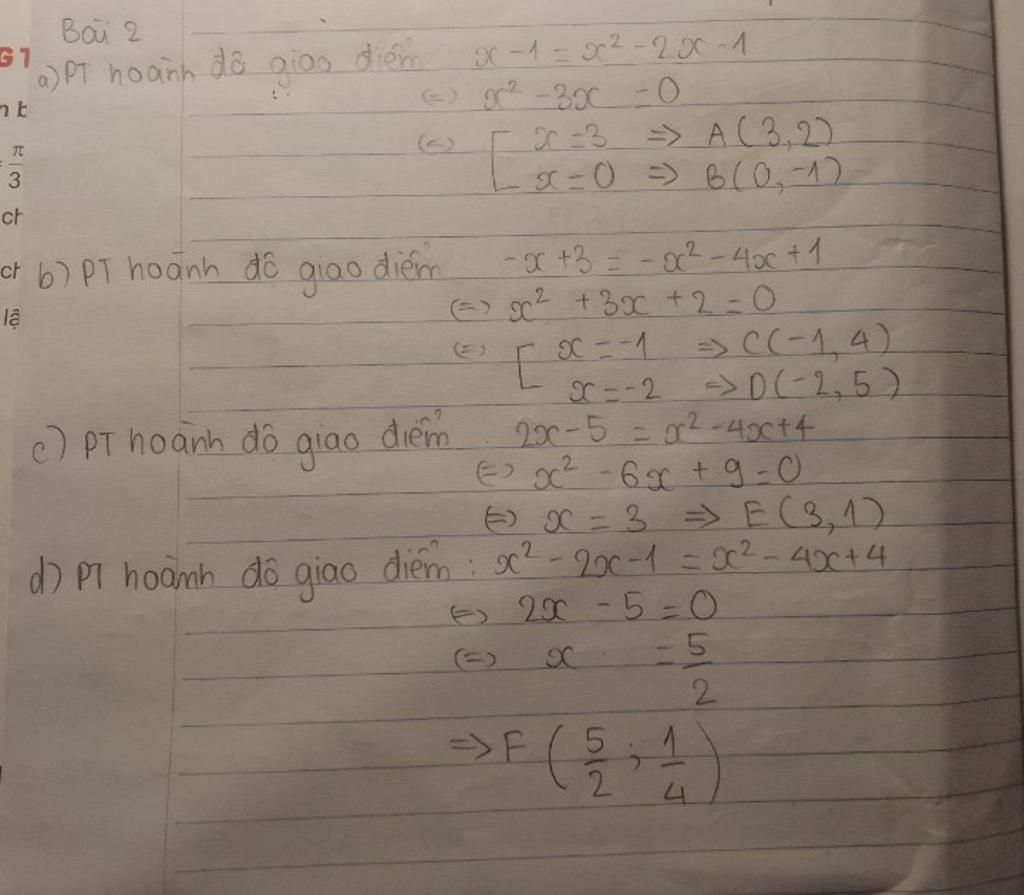 Bài 2
G 1
a) PT hoành độ giao điểm x - 1 = x² - 2x - 1
n b
(=) x² - 3x = 0
π/3
(=) [ x = 3 => A(3,2)
x = 0 => B(0,-1)
ch
ch
b) PT hoành độ giao điểm -x + 3 = -x² - 4x + 1
lệ
(=) x² + 3x + 2 = 0
(=) [ x = -1 => C(-1, 4)
x = -2 => D(-2, 5)
c) PT hoành độ giao điểm 2x - 5 = x² - 4x + 4
(=) x² - 6x + 9 = 0
(=) x = 3 => E(3,1)
d) PT hoành độ giao điểm : x² - 2x - 1 = x² - 4x + 4
(=) 2x - 5 = 0
(=) x = 5/2
=> F (5/2 ; 1/4)